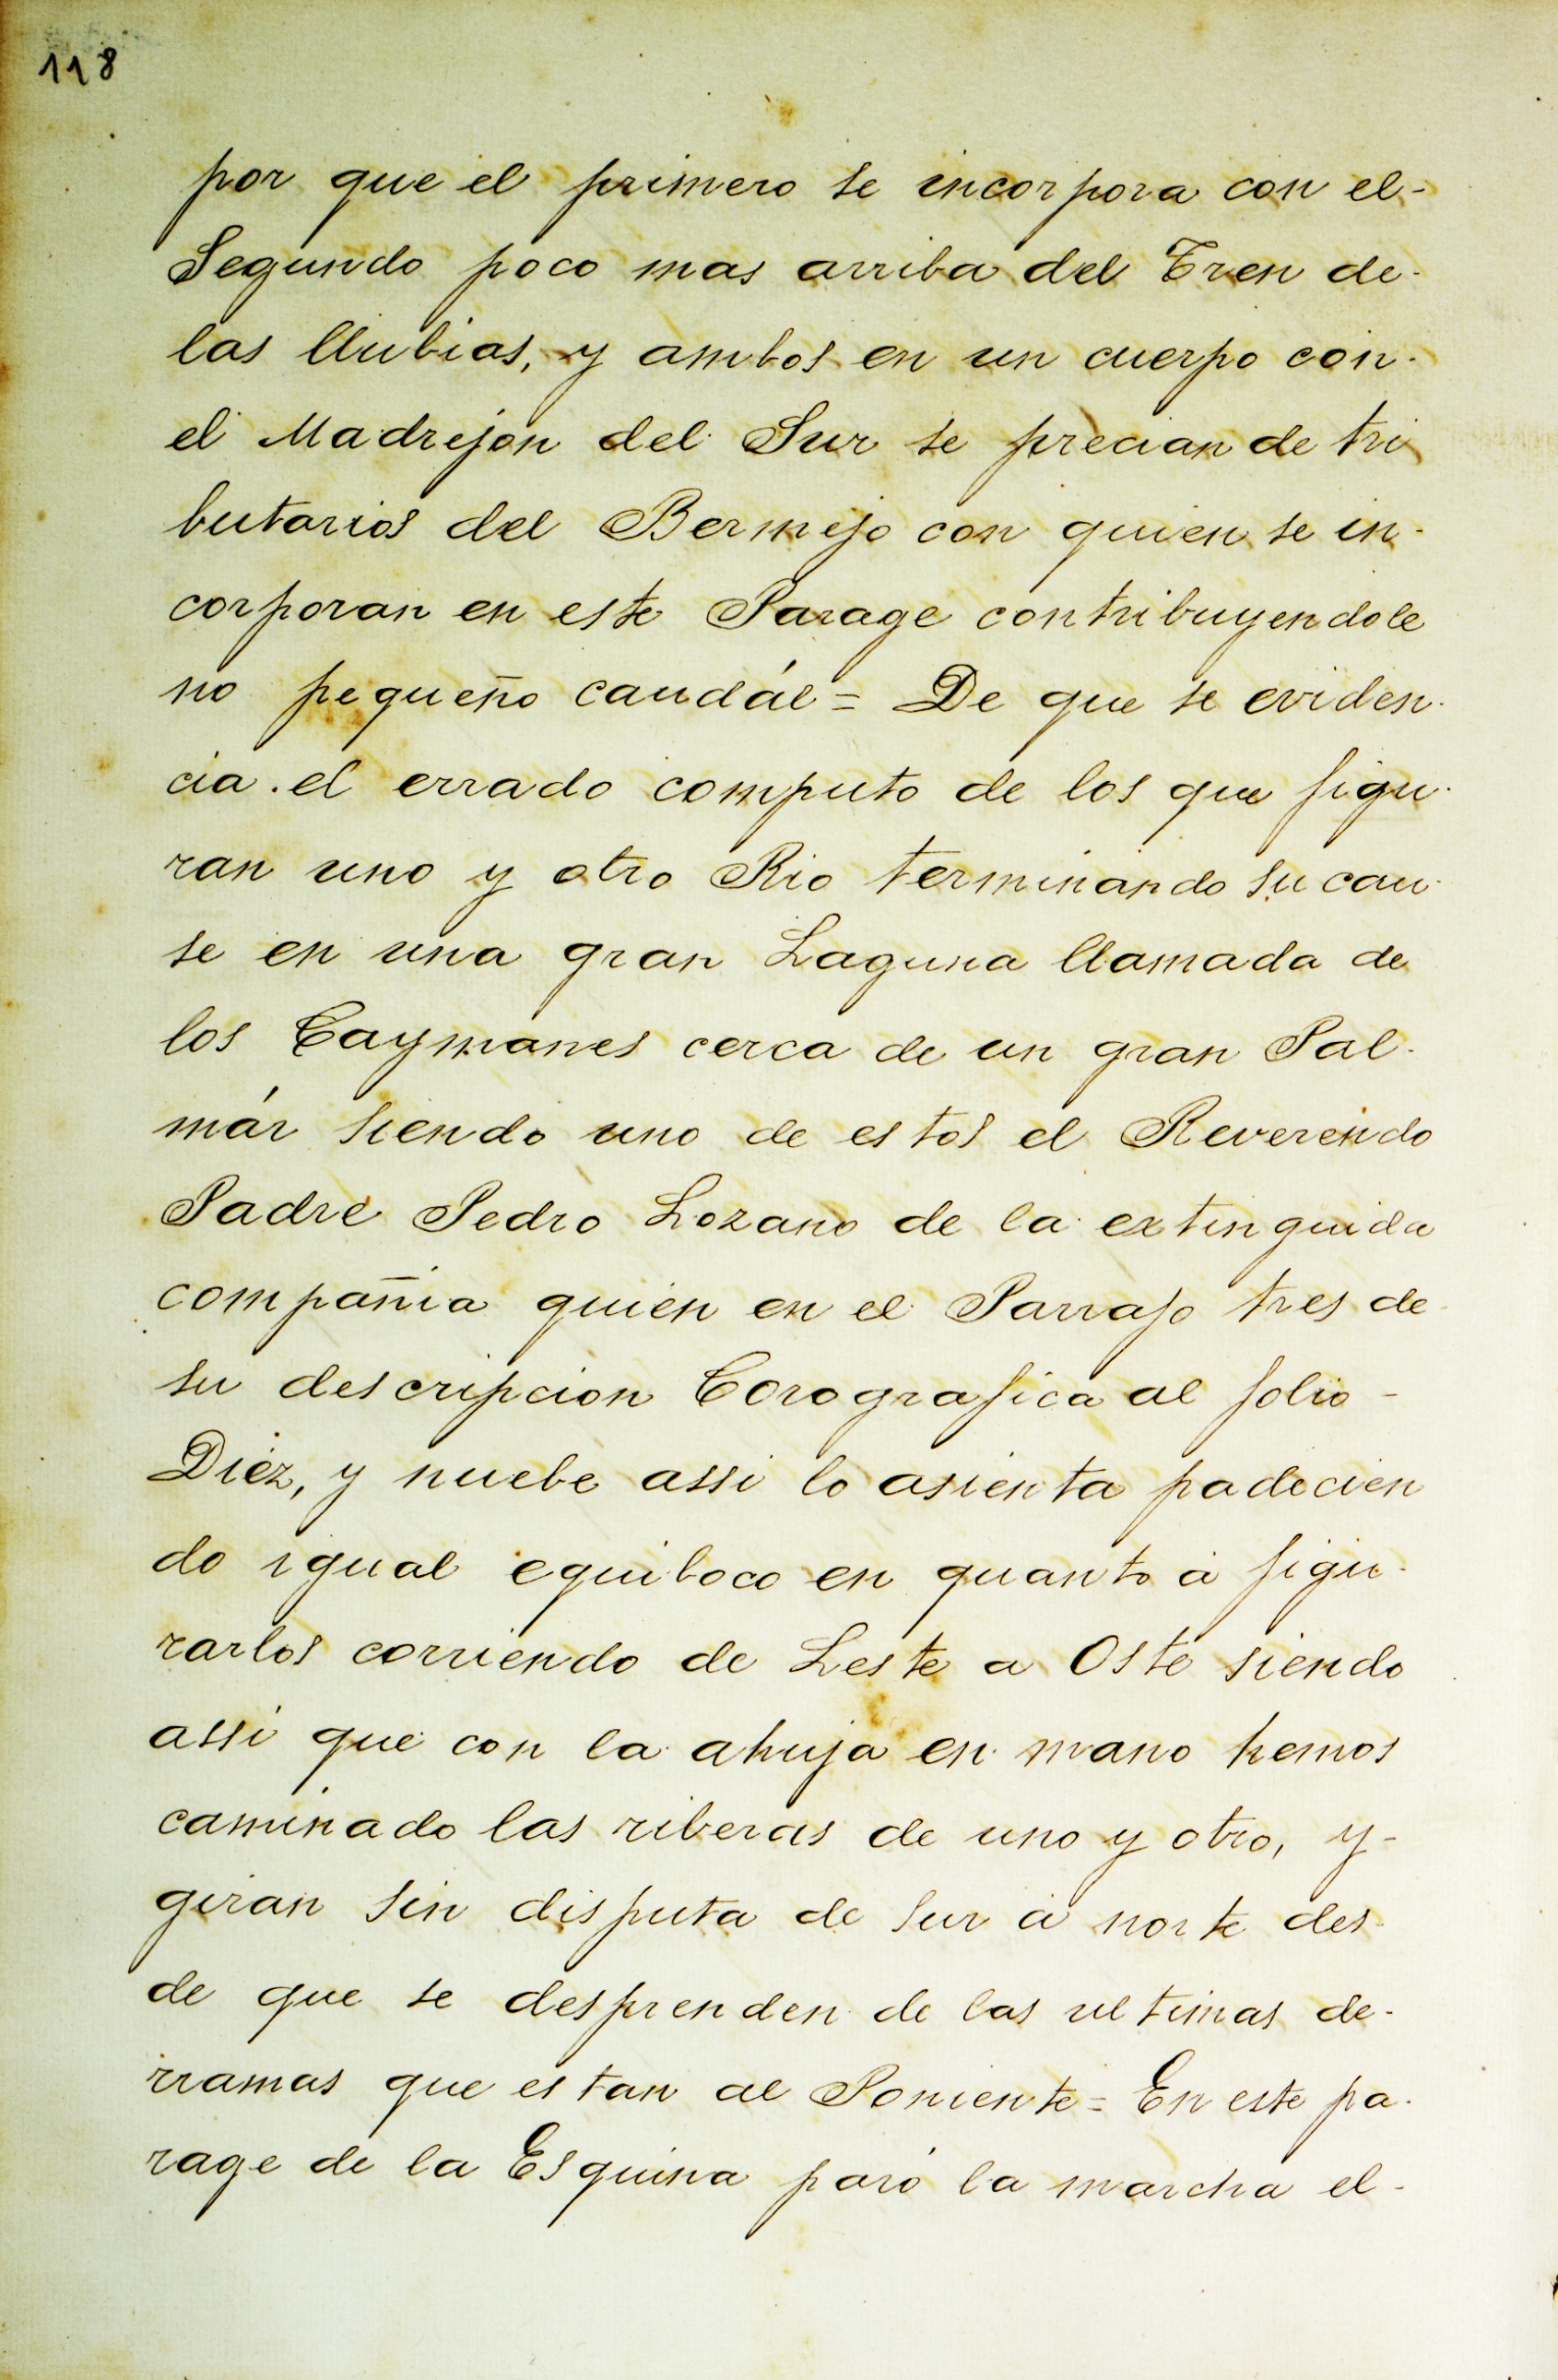 118
por que el primero se incorpora con el-
Segundo poco mas arriba del Tren de-
las llubias, y ambos en un cuerpo con-
el Madrejon del Sur se precian de tri
butarios del Bermejo con quien se in-
corporan en este Parage contribuyendole
no pequeño caudál = De que se eviden-
cia. el errado computo de los que figu-
ran uno y otro Rio terminando su cau-
se en una gran Laguna llamada de
los Caymanes cerca de un gran Pal-
már siendo uno de estos el Reverendo
Padre Pedro Lozano de la extinguida
compañia quien en el Parrafo tres de-
su descripcion Corografica al folio-
Diéz, y nuebe assi lo asienta padecien
do igual equiboco en quanto á figu-
rarlos corriendo de Leste a Oste siendo
assi que con la ahuja en mano hemos
caminado las riberas de uno y otro, y-
giran sin disputa de Sur á norte des-
de que se desprenden de las ultimas de-
rramas que estan al Poniente = En este pa-
rage de la Esquina paró la marcha el-